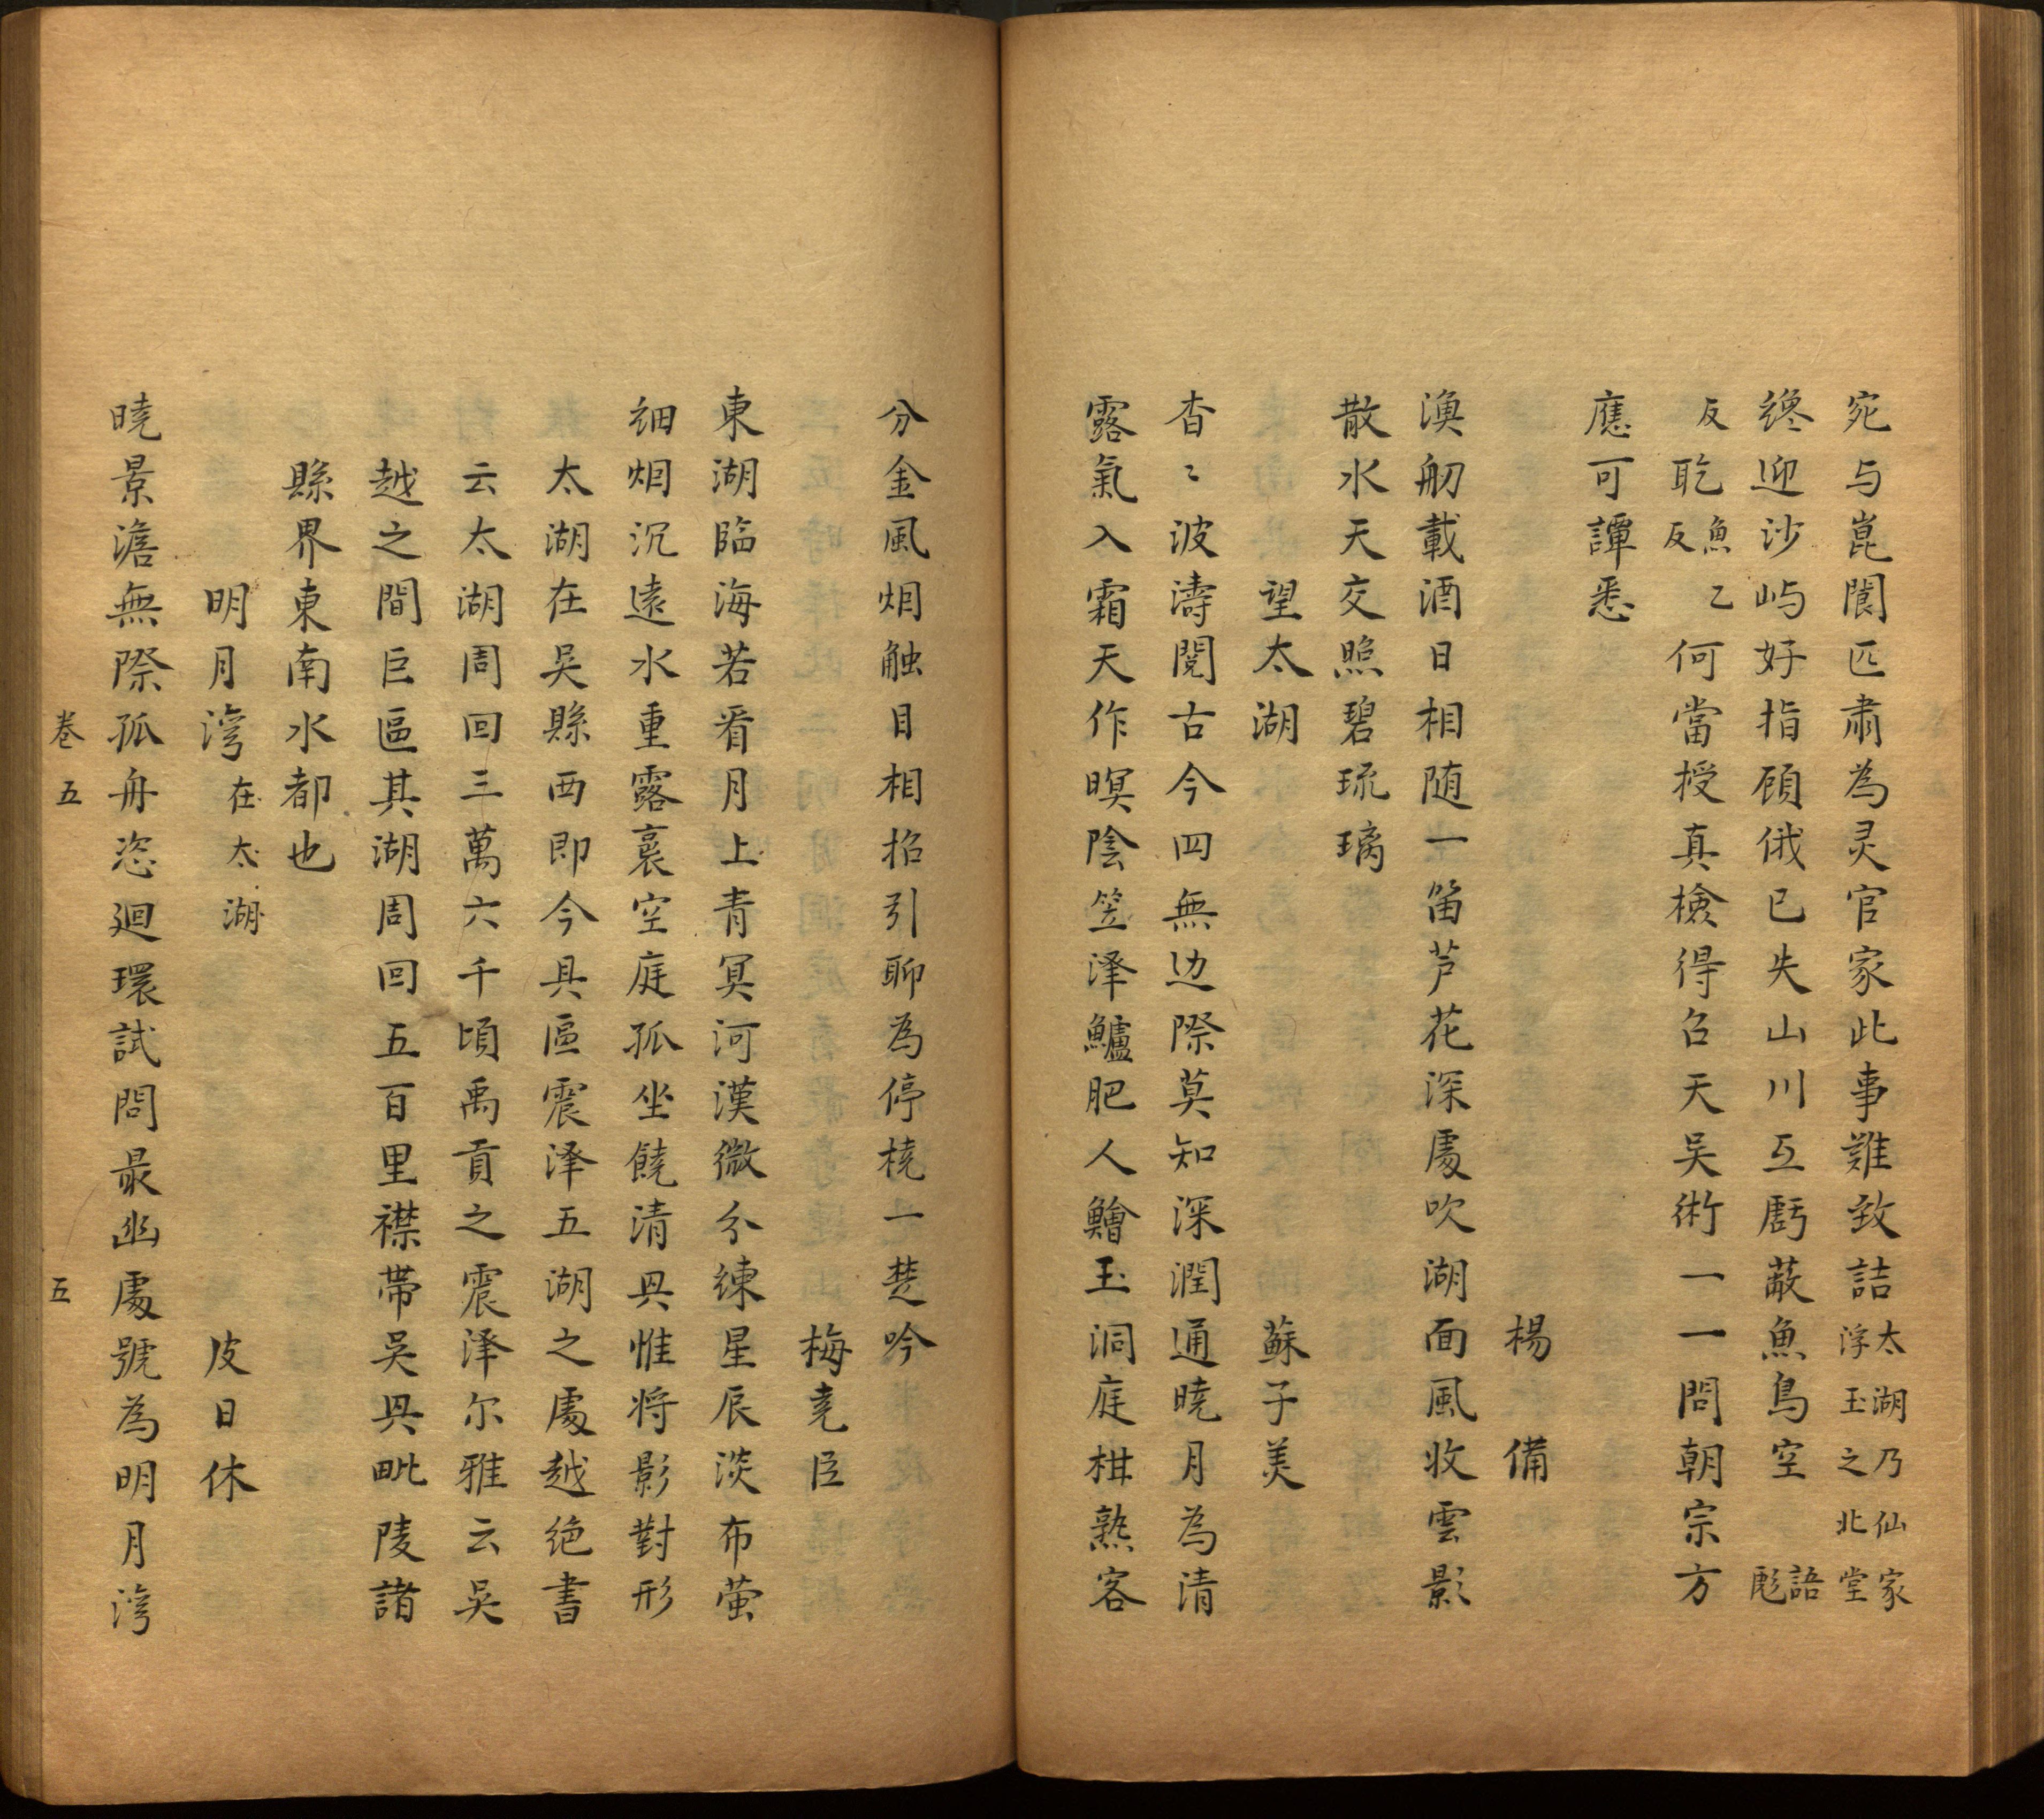 宛与崑閬匹肅為灵官家此事難致詰太湖乃仙家浮玉之北堂
纔迎沙屿好指顾俄已失山川互虧蔽魚鳥空語彪
反耴魚乙反何當授真檢得召天吴術一一問朝宗方
應可譚悉
楊備
漁舠載酒日相随一笛芦花深處吹湖面風收雲影
散水天交照碧琉璃
望太湖 蘇子美
杳〻波濤閱古今四無边際莫知深潤通曉月為清
露氣入霜天作暝陰笠泽鱸肥人鱠玉洞庭柑熟客
分金風烟触目相招引聊為停橈一楚吟
梅尭臣
東湖臨海若看月上青冥河漢微分練星辰淡布萤
細烟沉遠水重露裛空庭孤坐饒清興惟将影對形
太湖在吴縣西即今具區震泽五湖之處越绝書
云太湖周回三萬六千頃禹貢之震泽尔雅云吴
越之間巨區其湖周回五百里襟帶吴興毗陵諸
縣界東南水都也
明月湾在太湖 皮日休
曉景澹無際孤舟恣迴環試問最幽處號為明月湾
卷五 五